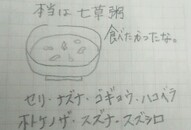 本当は七草粥
食べたかったな。
セリ・ナズナ・ゴギョウ・ハコベラ
ホトケノザ・スズナ・スズシロ